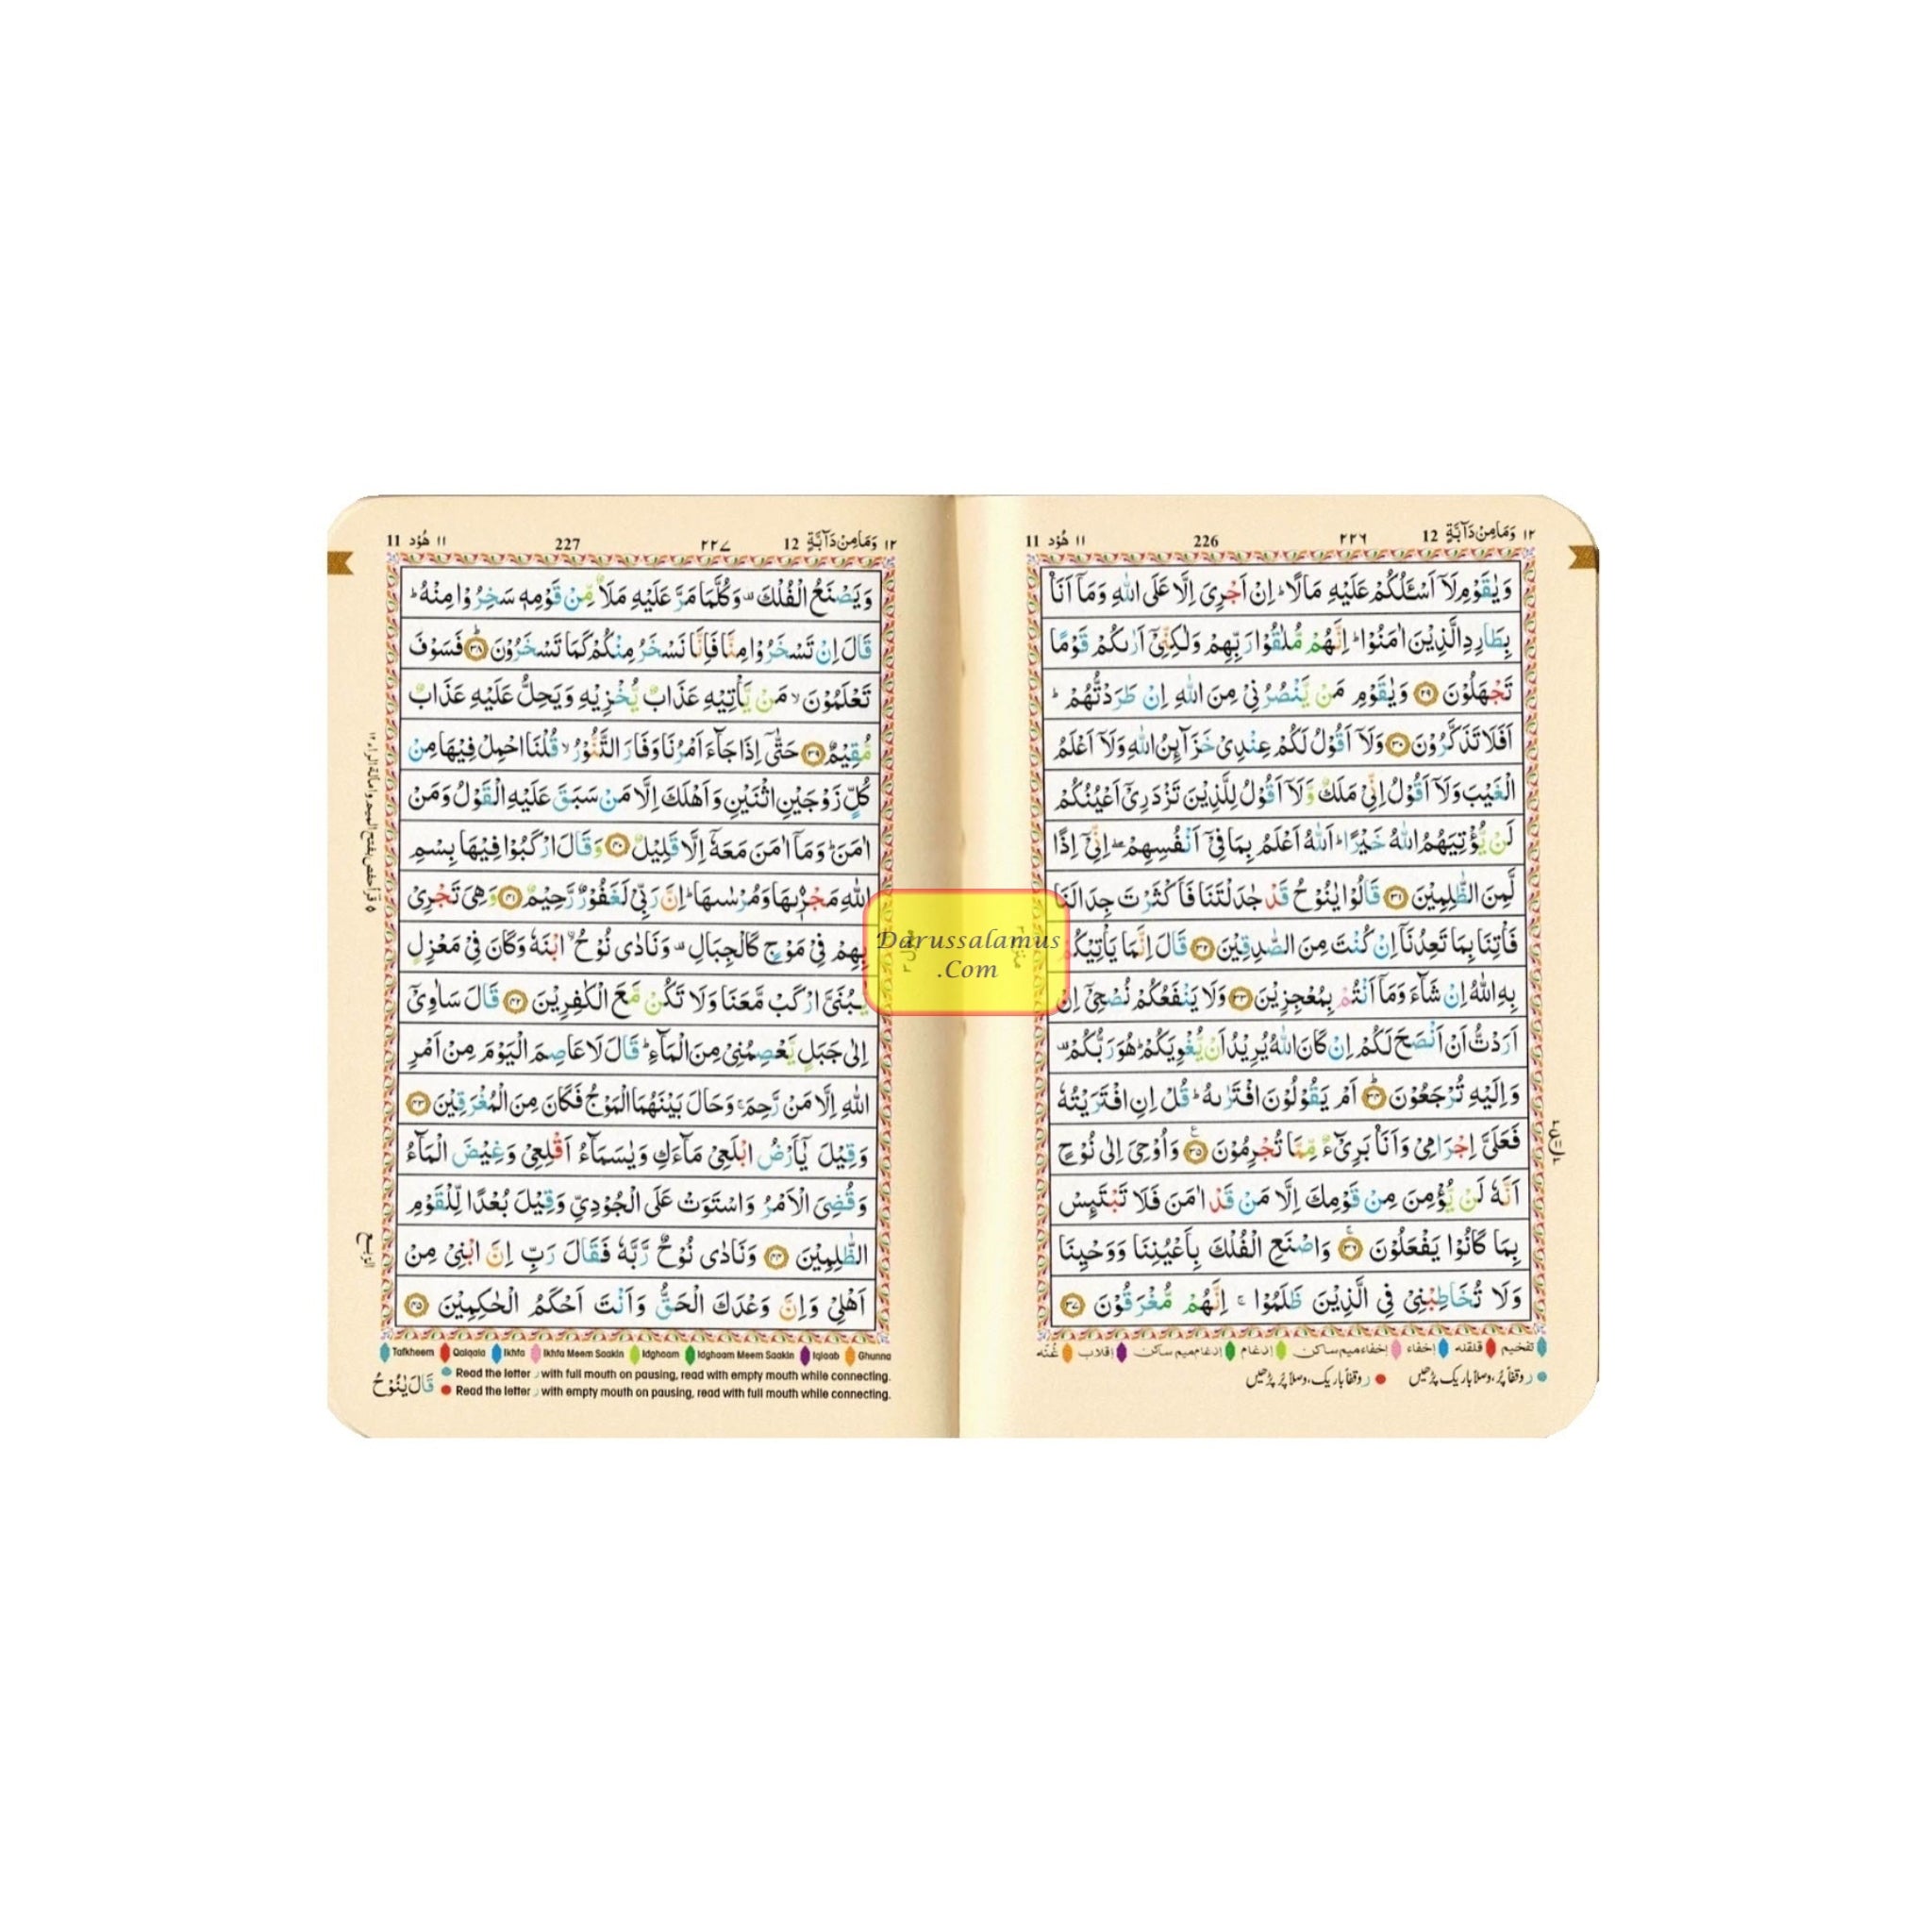 ١٢ وَمَا مِنْ دَآبَّةٍ 12 ٢٢٦ 226 ١١ هُوْد 11
وَيٰقَوْمِ لَاۤ اَسْـَٔلُكُمْ عَلَيْهِ مَالًا ؕ اِنْ اَجْرِىَ اِلَّا عَلَى اللّٰهِ وَمَاۤ اَنَا
بِطَارِدِ الَّذِيْنَ اٰمَنُوْا ؕ اِنَّهُمْ مُّلٰقُوْا رَبِّهِمْ وَلٰكِنِّىْۤ اَرٰىكُمْ قَوْمًا
تَجْهَلُوْنَ ﴿٢٩﴾ وَيٰقَوْمِ مَنْ يَّنْصُرُنِىْ مِنَ اللّٰهِ اِنْ طَرَدْتُّهُمْ ؕ
اَفَلَا تَذَكَّرُوْنَ ﴿٣٠﴾ وَلَاۤ اَقُوْلُ لَكُمْ عِنْدِىْ خَزَآئِنُ اللّٰهِ وَلَاۤ اَعْلَمُ
الْغَيْبَ وَلَاۤ اَقُوْلُ اِنِّىْ مَلَكٌ وَّلَاۤ اَقُوْلُ لِلَّذِيْنَ تَزْدَرِىْۤ اَعْيُنُكُمْ
لَنْ يُّؤْتِيَهُمُ اللّٰهُ خَيْرًا ؕ اَللّٰهُ اَعْلَمُ بِمَا فِىْۤ اَنْفُسِهِمْ ۖۚ اِنِّىْۤ اِذًا
لَّمِنَ الظّٰلِمِيْنَ ﴿٣١﴾ قَالُوْا يٰنُوْحُ قَدْ جٰدَلْتَنَا فَاَكْثَرْتَ جِدَالَنَا
فَاْتِنَا بِمَا تَعِدُنَاۤ اِنْ كُنْتَ مِنَ الصّٰدِقِيْنَ ﴿٣٢﴾ قَالَ اِنَّمَا يَاْتِيْكُمْ
بِهِ اللّٰهُ اِنْ شَآءَ وَمَاۤ اَنْتُمْ بِمُعْجِزِيْنَ ﴿٣٣﴾ وَلَا يَنْفَعُكُمْ نُصْحِىْۤ اِنْ
اَرَدْتُّ اَنْ اَنْصَحَ لَكُمْ اِنْ كَانَ اللّٰهُ يُرِيْدُ اَنْ يُّغْوِيَكُمْ ؕ هُوَ رَبُّكُمْ ۟
وَاِلَيْهِ تُرْجَعُوْنَ ﴿٣٤﴾ اَمْ يَقُوْلُوْنَ افْتَرٰىهُ ؕ قُلْ اِنِ افْتَرَيْتُهٗ
فَعَلَىَّ اِجْرَامِىْ وَاَنَا بَرِىْٓءٌ مِّمَّا تُجْرِمُوْنَ ﴿٣٥﴾ وَاُوْحِىَ اِلٰى نُوْحٍ
اَنَّهٗ لَنْ يُّؤْمِنَ مِنْ قَوْمِكَ اِلَّا مَنْ قَدْ اٰمَنَ فَلَا تَبْتَئِسْ
بِمَا كَانُوْا يَفْعَلُوْنَ ﴿٣٦﴾ وَاصْنَعِ الْفُلْكَ بِاَعْيُنِنَا وَوَحْيِنَا
وَلَا تُخَاطِبْنِىْ فِى الَّذِيْنَ ظَلَمُوْا ۚ اِنَّهُمْ مُّغْرَقُوْنَ ﴿٣٧﴾
تفخیم قلقله إخفاء إخفاء میم ساکن إدغام إدغام میم ساکن إقلاب غُنّه
ر وقفاً پُر، وصلاً باریک پڑھیں ر وقفاً باریک، وصلاً پُر پڑھیں
١٢ وَمَا مِنْ دَآبَّةٍ 12 ٢٢٧ 227 ١١ هُوْد 11
وَيَصْنَعُ الْفُلْكَ ۟ وَكُلَّمَا مَرَّ عَلَيْهِ مَلَاٌ مِّنْ قَوْمِهٖ سَخِرُوْا مِنْهُ ؕ
قَالَ اِنْ تَسْخَرُوْا مِنَّا فَاِنَّا نَسْخَرُ مِنْكُمْ كَمَا تَسْخَرُوْنَ ﴿٣٨﴾ فَسَوْفَ
تَعْلَمُوْنَ ۙ مَنْ يَّاْتِيْهِ عَذَابٌ يُّخْزِيْهِ وَيَحِلُّ عَلَيْهِ عَذَابٌ
مُّقِيْمٌ ﴿٣٩﴾ حَتّٰىۤ اِذَا جَآءَ اَمْرُنَا وَفَارَ التَّنُّوْرُ ۙ قُلْنَا احْمِلْ فِيْهَا مِنْ
كُلٍّ زَوْجَيْنِ اثْنَيْنِ وَاَهْلَكَ اِلَّا مَنْ سَبَقَ عَلَيْهِ الْقَوْلُ وَمَنْ
اٰمَنَ ؕ وَمَاۤ اٰمَنَ مَعَهٗۤ اِلَّا قَلِيْلٌ ﴿٤٠﴾ وَقَالَ ارْكَبُوْا فِيْهَا بِسْمِ
اللّٰهِ مَجْرٖىهَا وَمُرْسٰىهَا ؕ اِنَّ رَبِّىْ لَغَفُوْرٌ رَّحِيْمٌ ﴿٤١﴾ وَهِىَ تَجْرِىْ
بِهِمْ فِىْ مَوْجٍ كَالْجِبَالِ ۟ وَنَادٰى نُوْحُ ۨ ابْنَهٗ وَكَانَ فِىْ مَعْزِلٍ
يّٰبُنَىَّ ارْكَبْ مَّعَنَا وَلَا تَكُنْ مَّعَ الْكٰفِرِيْنَ ﴿٤٢﴾ قَالَ سَاٰوِىْۤ
اِلٰى جَبَلٍ يَّعْصِمُنِىْ مِنَ الْمَآءِ ؕ قَالَ لَا عَاصِمَ الْيَوْمَ مِنْ اَمْرِ
اللّٰهِ اِلَّا مَنْ رَّحِمَ ۚ وَحَالَ بَيْنَهُمَا الْمَوْجُ فَكَانَ مِنَ الْمُغْرَقِيْنَ ﴿٤٣﴾
وَقِيْلَ يٰۤاَرْضُ ابْلَعِىْ مَآءَكِ وَيٰسَمَآءُ اَقْلِعِىْ وَغِيْضَ الْمَآءُ
وَقُضِىَ الْاَمْرُ وَاسْتَوَتْ عَلَى الْجُوْدِىِّ وَقِيْلَ بُعْدًا لِّلْقَوْمِ
الظّٰلِمِيْنَ ﴿٤٤﴾ وَنَادٰى نُوْحٌ رَّبَّهٗ فَقَالَ رَبِّ اِنَّ ابْنِىْ مِنْ
اَهْلِىْ وَاِنَّ وَعْدَكَ الْحَقُّ وَاَنْتَ اَحْكَمُ الْحٰكِمِيْنَ ﴿٤٥﴾
Tafkheem Qalqala Ikhfa Ikhfa Meem Saakin Idghaam Idghaam Meem Saakin Iqlaab Ghunna
Read the letter ر with full mouth on pausing, read with empty mouth while connecting.
Read the letter ر with empty mouth on pausing, read with full mouth while connecting.
قَالَ يٰنُوْحُ
الربع
Darussalamus
.Com